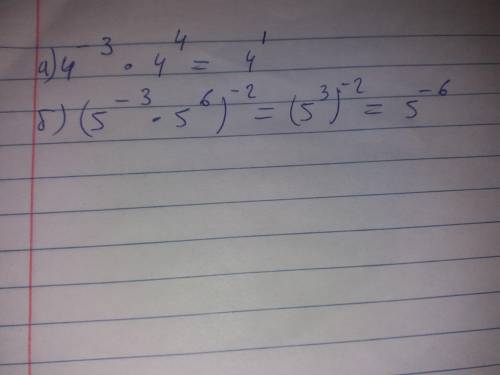 а) 4⁻³ · 4⁴ = 4¹
б) (5⁻³ · 5⁶)⁻² = (5³)⁻² = 5⁻⁶